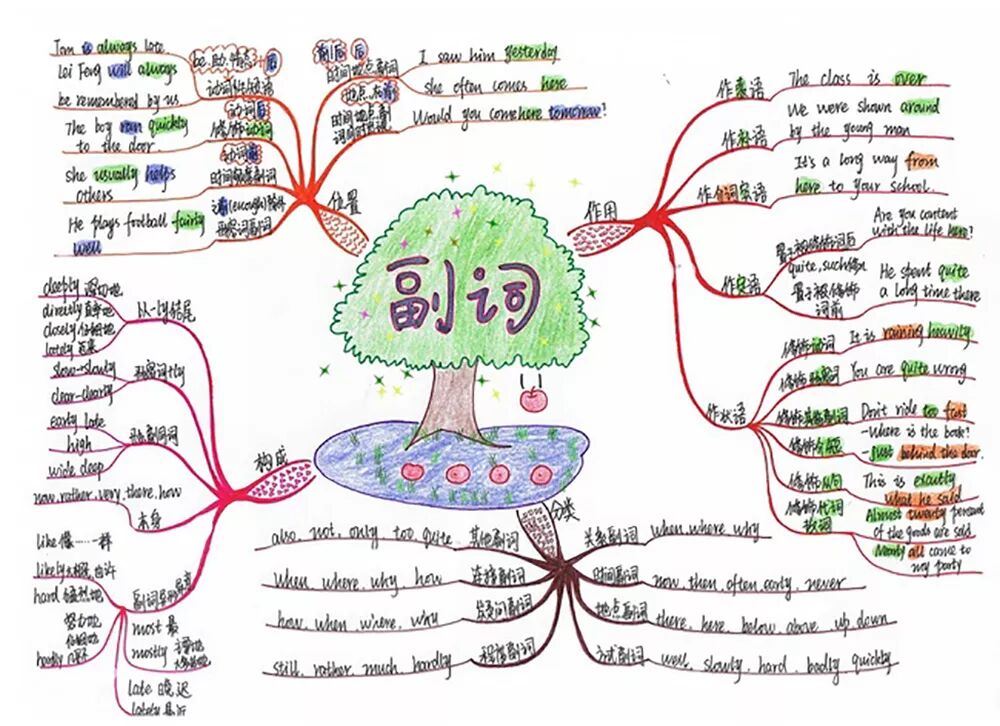 副词
位置
be.助.情态+后
动词作谓语
Tom is always late
Lei Feng will always
be remembered by us
动词后
修饰动词
The boy ran quickly
to the door
动词前
时间频度副词
she usually helps
others
形容词副词
He plays football fairly
well
时间地点副词
I saw him yesterday
she often comes here
Would you come here tomorrow?
作用
作表语
The class is over
作补语
We were shown around
by the young man
作介词宾语
It's a long way from
here to your school.
作定语
置于被修饰词后
Are you content
with the life here?
quite, such修饰
置于被修饰
词前
He spent quite
a long time there
作状语
修饰动词
It is raining heavily
修饰形容词
You are quite wrong
修饰其他副词
Don't ride too fast
修饰介短
-Where is the book?
-just behind the door.
修饰从句
This is exactly
what he said
修饰代词
数词
Almost twenty percent
of the goods are sold
Nearly all came to
my party
构成
以-ly结尾
deeply 深切地
directly 直率地
closely 仔细地
lately 近来
形容词+ly
slow-slowly
clear-clearly
形副同词
early late
high
wide deep
本身
now.rather.very.there.how
like 像……一样
likely
hard 猛烈地
努力地
hardly 几乎不
most 最
mostly
late 晚、迟
lately 最近
分类
其他副词
also. not. only too quite
连接副词
when where. why. how
疑问副词
how. when. where. why
程度副词
still. rather. much. hardly
关系副词
when. where. why
时间副词
now. then. often. early. never
地点副词
there. here. below. above. up down
方式副词
well. slowly. hard. badly quickly